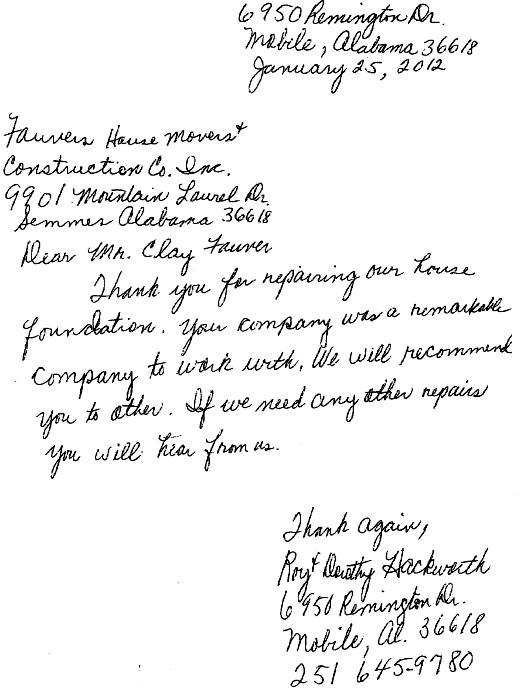 6950 Remington Dr.
Mobile, Alabama 36618
January 25, 2012
Fauvers House Movers &
Construction Co. Inc.
9901 Mountain Laurel Dr.
Semmes Alabama 36618
Dear Mr. Clay Fauver
Thank you for repairing our house
foundation. Your company was a remarkable
company to work with. We will recommend
you to other. If we need any other repairs
you will hear from us.
Thank again,
Roy & Dorothy Hackworth
6950 Remington Dr.
Mobile, Al. 36618
251 645-9780